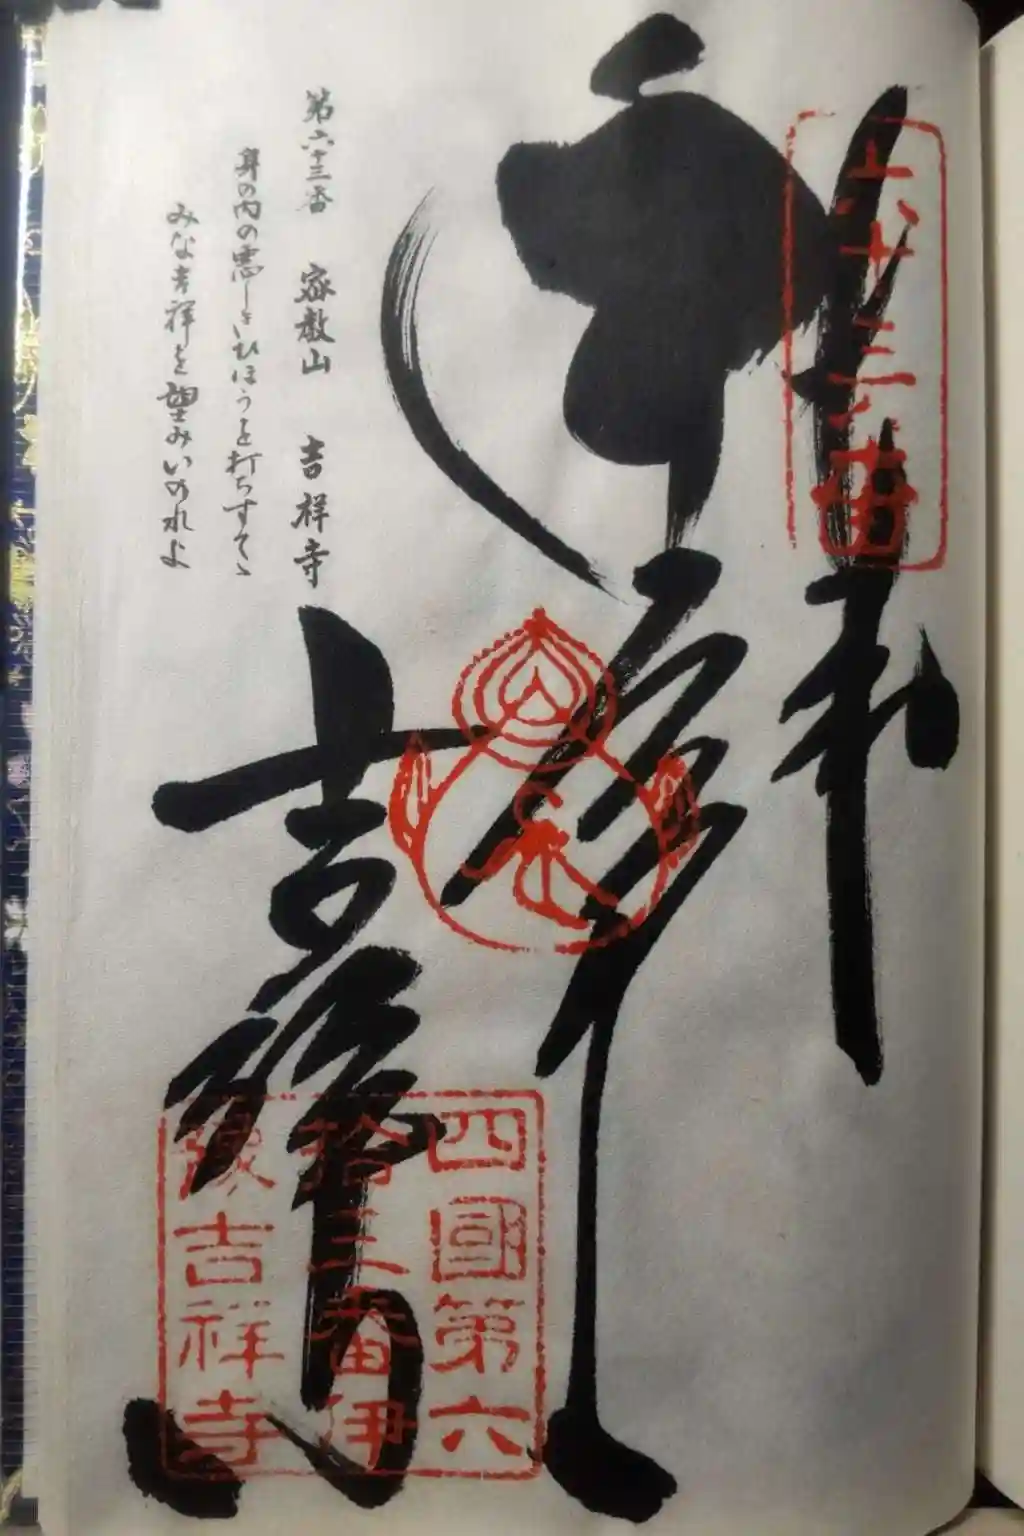 六十三番
奉納
四國第六
拾三番伊
豫吉祥寺
吉祥寺
第六十三番 密教山 吉祥寺
身の内の悪しきひほうを打ちすてゝ
みな吉祥を望みいのれよ